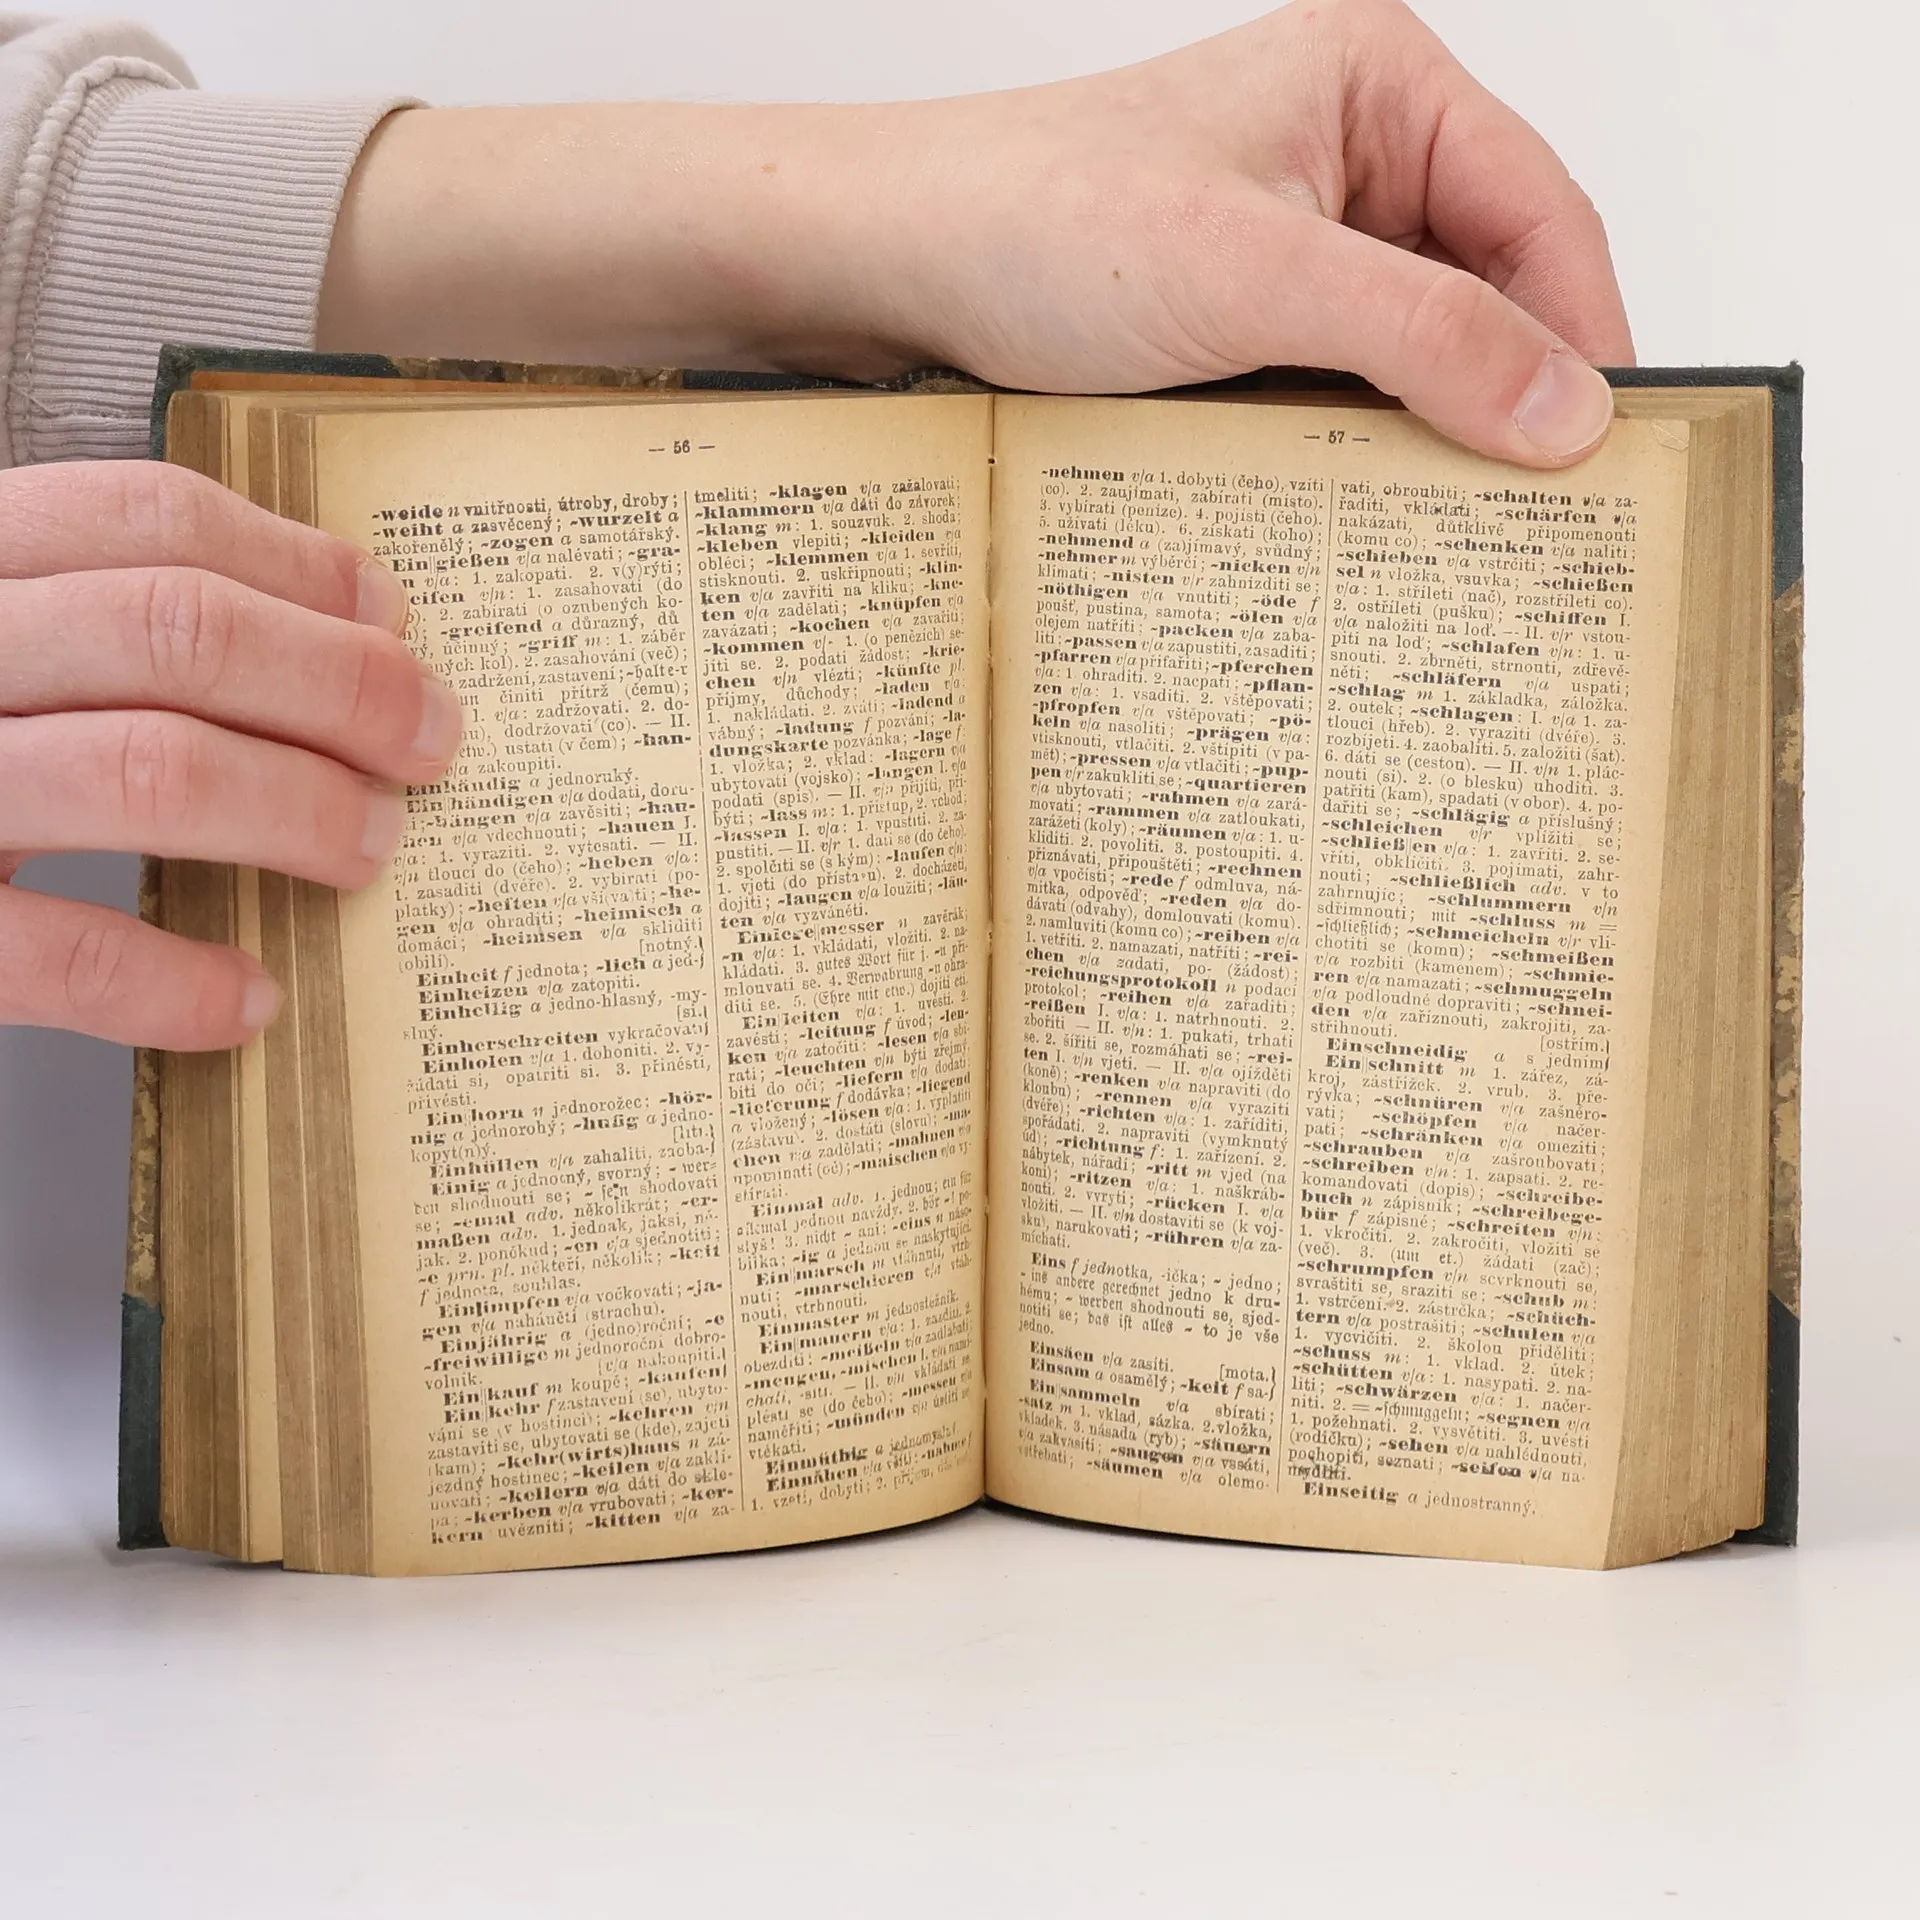 — 56 —
-weide n vnitřnosti, útroby, droby;
-weiht a zasvěcený; -wurzelt a
zakořenělý; -zogen a samotářský.
Ein||gießen v/a nalévati; -gra-
v/a: 1. zakopati. 2. v(y)rýti;
v/n: 1. zasahovati (do
2. zabírati (o ozubených ko-
-greifend a důrazný, dů
účinný; -griff m: 1. záběr
kol). 2. zasahování (več);
zadržení, zastavení; -halte-r
činiti přítrž (čemu);
1. v/a: zadržovati. 2. do-
dodržovati (co). — II.
ustati (v čem); -han-
v/a zakoupiti.
Einhändig a jednoruký.
Ein||händigen v/a dodati, doru-
-hängen v/a zavěsiti; -hau-
chen v/a vdechnouti; -hauen I.
v/a: 1. vyraziti. 2. vytesati. — II.
v/n tlouci do (čeho); -heben v/a:
1. zasaditi (dvéře). 2. vybírati (po-
platky); -heften v/a vší(va)ti; -he-
gen v/a ohraditi; -heimisch a
domácí; -heimsen v/a skliditi
(obilí). [notný.}
Einheit f jednota; -lich a jed-}
Einheizen v/a zatopiti.
Einhellig a jedno-hlasný, -my-
slný. [si.}
Einherschreiten vykračovati}
Einholen v/a 1. dohoniti. 2. vy-
žádati si, opatřiti si. 3. přinésti,
přivésti.
Ein||horn n jednorožec; -hör-
nig a jednorohý; -hufig a jedno-
kopyt(n)ý. [liti.}
Einhüllen v/a zahaliti, zaoba-}
Einig a jednotný, svorný; - wer-
den shodnouti se; - sein shodovati
se; -emal adv. několikrát; -er-
maßen adv. 1. jednak, jaksi, ně-
jak. 2. poněkud; -en v/a sjednotiti;
-e prn. pl. někteří, několik; -keit
f jednota, souhlas.
Einimpfen v/a vočkovati; -ja-
gen v/a naháněti (strachu).
Einjährig a (jedno)roční; -e
-freiwillige m jednoroční dobro-
volník. [v/a nakoupiti.}
Ein||kauf m koupě; -kaufen}
Ein||kehr f zastavení (se), ubyto-
vání se (v hostinci); -kehren v/n
zastaviti se, ubytovati se (kde), zajeti
(kam); -kehr(wirts)haus n zá-
jezdný hostinec; -keilen v/a zaklí-
novati; -kellern v/a dáti do skle-
pa; -kerben v/a vrubovati; -ker-
kern uvězniti; -kitten v/a za-
tmeliti; -klagen v/a zažalovati;
-klammern v/a dáti do závorek;
-klang m: 1. souzvuk. 2. shoda;
-kleben vlepiti; -kleiden v/a
obléci; -klemmen v/a 1. sevříti,
stisknouti. 2. uskřípnouti; -klin-
ken v/a zavříti na kliku; -kne-
ten v/a zadělati; -knüpfen v/a
zavázati; -kochen v/a zavařiti;
-kommen v/- 1. (o penězích) se-
jíti se. 2. podati žádost; -krie-
chen v/n vlézti; -künfte pl.
příjmy, důchody; -laden v/a:
1. nakládati. 2. zváti; -ladend a
vábný; -ladung f pozvání; -la-
dungskarte pozvánka; -lage f:
1. vložka; 2. vklad: -lagern v/a
ubytovati (vojsko); -langen I. v/a
podati (spis). — II. v/n přijíti, při-
býti; -lass m: 1. přístup, 2. vchod;
-lassen I. v/a: 1. vpustiti. 2. za-
pustiti. — II. v/r 1. dati se (do čeho).
2. spolčiti se (s kým); -laufen v/n:
1. vjeti (do přístavu). 2. docházeti,
dojíti; -laugen v/a loužiti; -läu-
ten v/a vyzváněti.
Einlege||messer n zavěrák;
-n v/a: 1. vkládati, vložiti. 2. na-
kládati. 3. gutes Wort für j. -n při-
mlouvati se. 4. Verwahrung -n ohra-
diti se. 5. (Ehre mit etw.) dojíti cti.
Ein||leiten v/a: 1. uvésti. 2.
zavésti; -leitung f úvod; -len-
ken v/a zatočiti; -lesen v/a sbí-
rati; -leuchten v/n býti zřejmý,
bíti do očí; -liefern v/a dodati;
-lieferung f dodávka; -liegend
a vložený; -lösen v/a: 1. vyplatiti
(zástavu). 2. dostáti (slovu); -ma-
chen v/a zadělati; -mahnen v/a
upomínati (oč); -maischen v/a vy-
stírati.
Einmal adv. 1. jednou; ein für
allemal jednou navždy. 2. hör -! po-
slyš! 3. nicht - ani; -eins n náso-
bilka; -ig a jednou se naskytující.
Ein||marsch m vtáhnutí, vtrh-
nutí; -marschieren v/a vtáh-
nouti, vtrhnouti.
Einmaster m jednostěžník.
Ein||mauern v/a: 1. zazdíti. 2.
obezditi; -meißeln v/a zadlabati;
-mengen, -mischen I. v/a namí-
chati, -siti. — II. v/n vkládati se,
plésti se (do čeho); -messen v/a
naměřiti; -münden v/n ústiti se
vtékati.
Einmüthig a jednomyslný.
Einnähen v/a všíti; -nahme f
1. vzetí, dobytí; 2. příjem,
— 57 —
-nehmen v/a 1. dobyti (čeho), vzíti
(co). 2. zaujímati, zabírati (místo).
3. vybírati (peníze). 4. pojísti (čeho).
5. užívati (léku). 6. získati (koho);
-nehmend a (za)jímavý, svůdný;
-nehmer m výběrčí; -nicken v/n
klímati; -nisten v/r zahnízditi se;
-nöthigen v/a vnutiti; -öde f
poušť, pustina, samota; -ölen v/a
olejem natříti; -packen v/a zaba-
liti; -passen v/a zapustiti, zasaditi;
-pfarren v/a přifařiti; -pferchen
v/a: 1. ohraditi. 2. nacpati; -pflan-
zen v/a: 1. vsaditi. 2. vštěpovati;
-pfropfen v/a vštěpovati; -pö-
keln v/a nasoliti; -prägen v/a:
vtisknouti, vtlačiti. 2. vštípiti (v pa-
mět); -pressen v/a vtlačiti; -pup-
pen v/r zakukliti se; -quartieren
v/a ubytovati; -rahmen v/a zará-
movati; -rammen v/a zatloukati,
zarážeti (koly); -räumen v/a: 1. u-
kliditi. 2. povoliti. 3. postoupiti. 4.
přiznávati, připouštěti; -rechnen
v/a vpočísti; -rede f odmluva, ná-
mitka, odpověď; -reden v/a do-
dávati (odvahy), domlouvati (komu).
2. namluviti (komu co); -reiben v/a
1. vetříti. 2. namazati, natříti; -rei-
chen v/a zadati, po- (žádost);
-reichungsprotokoll n podací
protokol; -reihen v/a zařaditi;
-reißen I. v/a: 1. natrhnouti. 2.
zbořiti — II. v/n: 1. pukati, trhati
se. 2. šířiti se, rozmáhati se; -rei-
ten I. v/n vjeti. — II. v/a ojížděti
(koně); -renken v/a napraviti (do
kloubu); -rennen v/a vyraziti
(dvéře); -richten v/a: 1. zaříditi,
spořádati. 2. napraviti (vymknutý
úd); -richtung f: 1. zařízení. 2.
nábytek, nářadí; -ritt m vjed (na
koni); -ritzen v/a: 1. naškráb-
nouti. 2. vyryti; -rücken I. v/a
vložiti. — II. v/n dostaviti se (k voj-
sku), narukovati; -rühren v/a za-
míchati.
Eins f jednotka, -ička; - jedno;
- ins andere gerechnet jedno k dru-
hému; - werden shodnouti se, sjed-
notiti se; das ist alles - to je vše
jedno.
Einsäen v/a zasíti. [mota.}
Einsam a osamělý; -keit f sa-}
Ein||sammeln v/a sbírati;
-satz m 1. vklad, sázka. 2. vložka,
vkládek. 3. násada (ryb); -säuern
v/a zakvasiti; -saugen v/a vssáti,
vstřebati; -säumen v/a olemo-
vati, obroubiti; -schalten v/a za-
řaditi, vkládati; -schärfen v/a
nakázati, důtklivě připomenouti
(komu co); -schenken v/a naliti;
-schieben v/a vstrčiti; -schieb-
sel n vložka, vsuvka; -schießen
v/a: 1. stříleti (nač), rozstříleti co).
2. ostříleti (pušku); -schiffen I.
v/a naložiti na loď. — II. v/r vstou-
piti na loď; -schlafen v/n: 1. u-
snouti. 2. zbrněti, strnouti, zdřevě-
něti; -schläfern v/a uspati;
-schlag m 1. základka, záložka.
2. outek; -schlagen: I. v/a 1. za-
tlouci (hřeb). 2. vyraziti (dvéře). 3.
rozbíjeti. 4. zaobaliti. 5. založiti (šat).
6. dáti se (cestou). — II. v/n 1. plác-
nouti (si). 2. (o blesku) uhoditi. 3.
patřiti (kam), spadati (v obor). 4. po-
dařiti se; -schlägig a příslušný;
-schleichen v/r vplížiti se;
-schließ||en v/a: 1. zavříti. 2. se-
vříti, obklíčiti. 3. pojímati, zahr-
nouti; -schließlich adv. v to
zahrnujíc; -schlummern v/n
sdřímnouti; mit -schluss m =
-schließlich; -schmeicheln v/r vli-
chotiti se (komu); -schmeißen
v/a rozbiti (kamenem); -schmie-
ren v/a namazati; -schmuggeln
v/a podloudně dopraviti; -schnei-
den v/a zaříznouti, zakrojiti, za-
střihnouti. [ostřím.}
Einschneidig a s jedním}
Ein||schnitt m 1. zářez, zá-
kroj, zástřižek. 2. vrub. 3. pře-
rývka; -schnüren v/a zašněro-
vati; -schöpfen v/a načer-
pati; -schränken v/a omeziti;
-schrauben v/a zašroubovati;
-schreiben v/n: 1. zapsati. 2. re-
komandovati (dopis); -schreibe-
buch n zápisník; -schreibege-
bür f zápisné; -schreiten v/n:
1. vkročiti. 2. zakročiti, vložiti se
(več). 3. (um et.) žádati (zač);
-schrumpfen v/n scvrknouti se,
svraštiti se, sraziti se; -schub m:
1. vstrčení. 2. zástrčka; -schüch-
tern v/a postrašiti; -schulen v/a
1. vycvičiti. 2. školou přiděliti;
-schuss m: 1. vklad. 2. útek;
-schütten v/a: 1. nasypati. 2. na-
liti; -schwärzen v/a: 1. načer-
niti. 2. = -schmuggeln; -segnen v/a
1. požehnati. 2. vysvětiti. 3. uvésti
(rodičku); -sehen v/a nahlédnouti,
pochopiti, seznati; -seifen v/a na-
mydliti.
Einseitig a jednostranný.